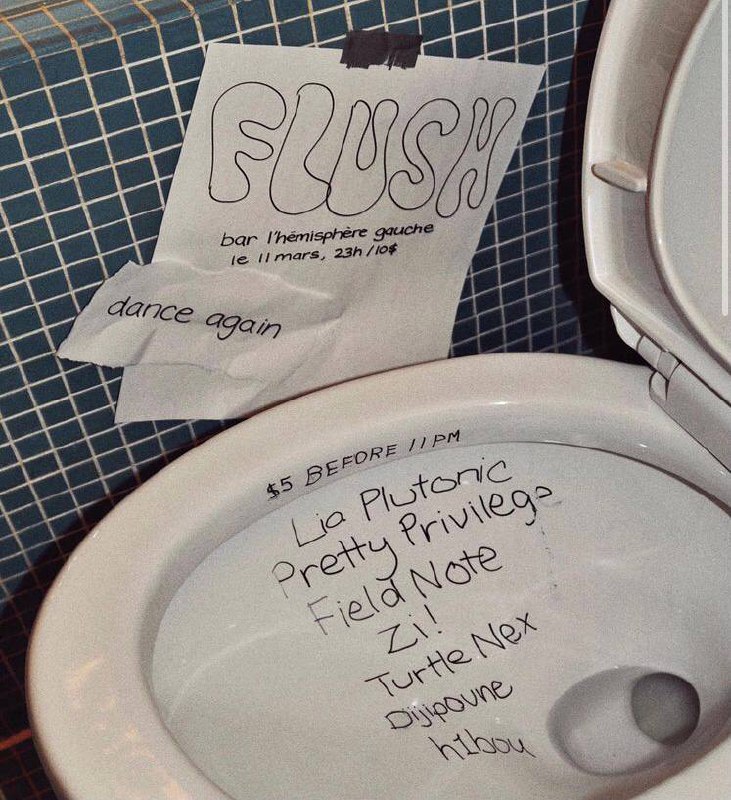 FLUSH
bar l'hémisphère gauche
le 11 mars, 23h/10$
dance again
$5 BEFORE 11PM
Lia Plutonic
Pretty Privilege
Field Note
Zi!
Turtle Nex
Dijipoune
h1bou